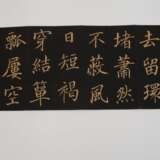 去留環
堵蕭然
不蔽風
日短褐
穿結簞
瓢屢空